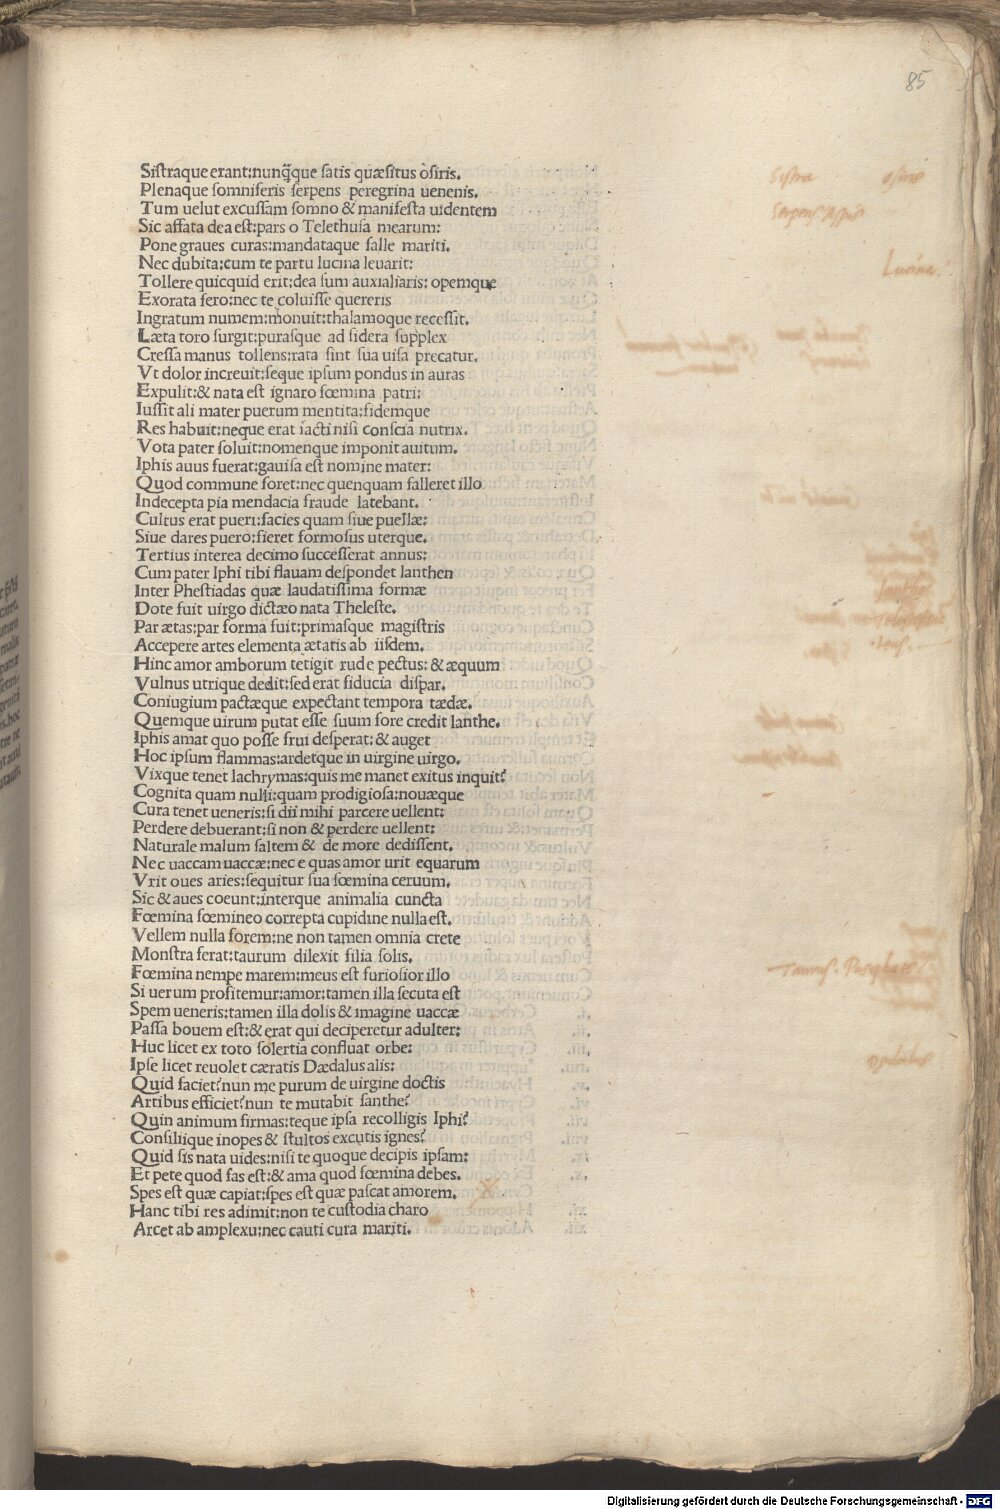 85
Sistraque erant:nunq̃que satis quæsitus osiris.
Plenaque somniferis serpens peregrina uenenis.
Tum uelut excussam somno & manifesta uidentem
Sic affata dea est:pars o Telethusa mearum:
Pone graues curas:mandataque falle mariti.
Nec dubita:cum te partu lucina leuarit:
Tollere quicquid erit:dea sum auxialiaris: opemque
Exorata fero:nec te coluisse quereris
Ingratum numem:monuit:thalamoque recessit.
Læta toro surgit:purasque ad sidera supplex
Cressa manus tollens:rata sint sua uisa precatur.
Vt dolor increuit:seque ipsum pondus in auras
Expulit:& nata est ignaro fœmina patri:
Iussit ali mater puerum mentita:fidemque
Res habuit:neque erat facti nisi conscia nutrix.
Vota pater soluit:nomenque imponit auitum.
Iphis auus fuerat:gauisa est nomine mater:
Quod commune foret:nec quenquam falleret illo
Indecepta pia mendacia fraude latebant.
Cultus erat pueri:facies quam siue puellæ:
Siue dares puero:fieret formosus uterque.
Tertius interea decimo successerat annus:
Cum pater Iphi tibi flauam despondet Ianthen
Inter Phestiadas quæ laudatissima formæ
Dote fuit uirgo dictæo nata Theleste.
Par ætas:par forma fuit:primasque magistris
Accepere artes elementa ætatis ab iisdem.
Hinc amor amborum tetigit rude pectus: & æquum
Vulnus utrique dedit:sed erat fiducia dispar.
Coniugium pactæque expectant tempora tædæ.
Quemque uirum putat esse suum fore credit Ianthe.
Iphis amat quo posse frui desperat: & auget
Hoc ipsum flammas:ardetque in uirgine uirgo.
Vixque tenet lachrymas:quis me manet exitus inquit?
Cognita quam nulli:quam prodigiosa:nouæque
Cura tenet ueneris:si dii mihi parcere uellent:
Perdere debuerant:si non & perdere uellent:
Naturale malum saltem & de more dedissent.
Nec uaccam uaccæ:nec equas amor urit equarum
Vrit oues aries:sequitur sua fœmina ceruum.
Sic & aues coeunt:interque animalia cuncta
Fœmina fœmineo correpta cupidine nulla est.
Vellem nulla forem:ne non tamen omnia crete
Monstra ferat:taurum dilexit filia solis.
Fœmina nempe marem:meus est furiosior illo
Si uerum profitemur:amor:tamen illa secuta est
Spem ueneris:tamen illa dolis & imagine uaccæ
Passa bouem est:& erat qui deciperetur adulter:
Huc licet ex toto solertia confluat orbe:
Ipse licet reuolet cæratis Dædalus alis:
Quid faciet?nun me purum de uirgine doctis
Artibus efficiet?nun te mutabit ianthe?
Quin animum firmas:teque ipsa recolligis Iphi?
Consiliique inopes & stultos excutis ignes?
Quid sis nata uides:nisi te quoque decipis ipsam:
Et pete quod fas est:& ama quod fœmina debes.
Spes est quæ capiat:spes est quæ pascat amorem.
Hanc tibi res adimit:non te custodia charo
Arcet ab amplexu:nec cauti cura mariti.
Sistra osiris
Serpens Aspis
Lucina.
Ianthe
Taurus. Pasiphae
Dedalus
Digitalisierung gefördert durch die Deutsche Forschungsgemeinschaft - DFG